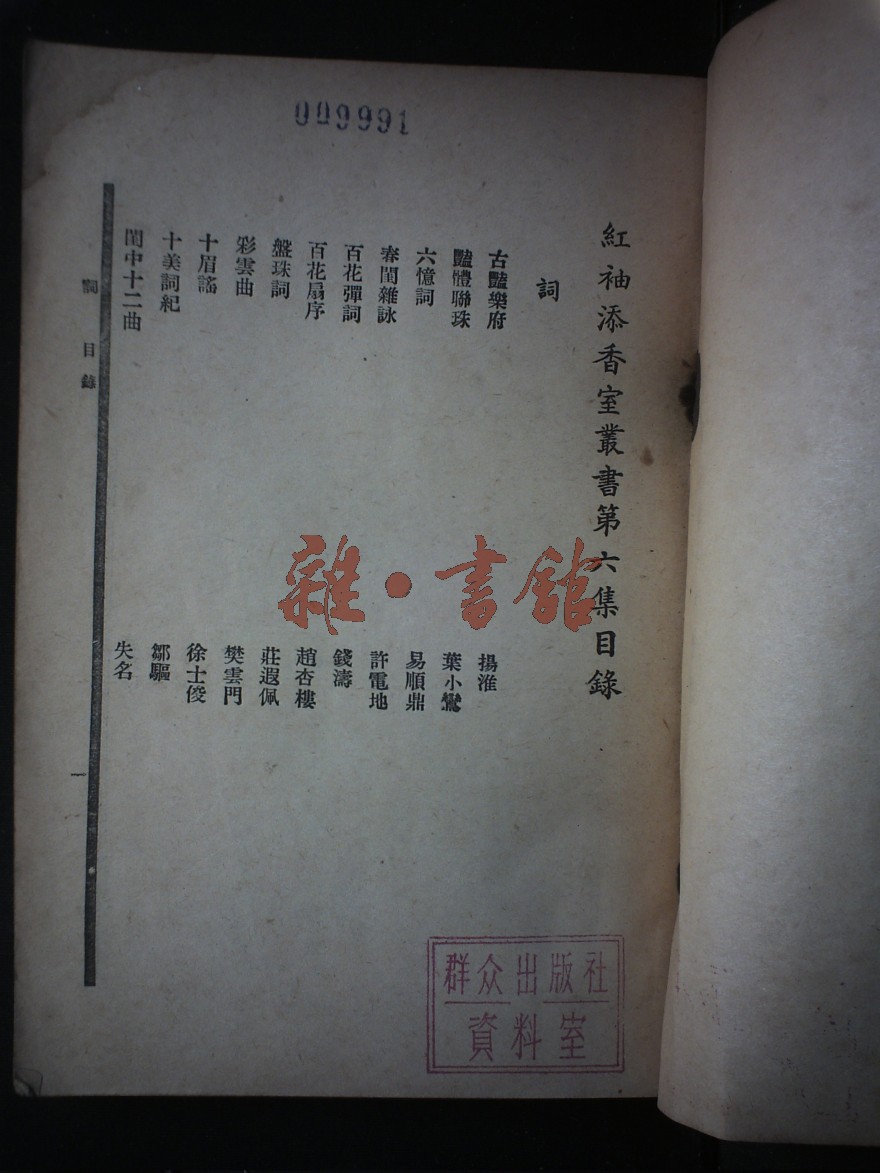 009991
紅袖添香室叢書第六集目錄
詞
古豔樂府 揚淮
豔體聯珠 葉小鸞
六憶詞 易順鼎
春閨雜詠 許電地
百花彈詞 錢濤
百花扇序 趙杏樓
盤珠詞 莊遐佩
彩雲曲 樊雲門
十眉謠 徐士俊
十美詞紀 鄒驅
閨中十二曲 失名
詞 目錄
一
雜·書館
群众出版社
資料室